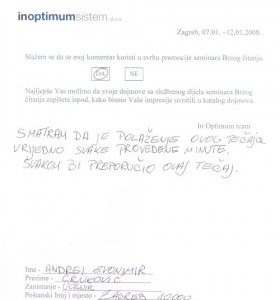 inoptimumsistem d.o.o.
Zagreb, 07.01. -12.01.2008.
Slažem se da se moj komentar koristi u svrhu promocije seminara Brzog čitanja.
DA NE
Najljepše Vas molimo da svoje dojmove sa službenog dijela seminara Brzog
čitanja zapišete ispod, kako bismo Vaše impresije uvrstili u katalog dojmova.
In Optimum team
SMATRAM DA JE POLAŽENJE OVOG TEČAJA
VRIJEDNO SVAKE PROVEDENE MINUTE.
SVAKOM BI PREPORUČIO OVAJ TEČAJ.
Ime - ANDREJ ZVONIMIR
Prezime - CRNKOVIĆ
Zanimanje - UČENIK
Poštanski broj i mjesto - ZAGREB 10000